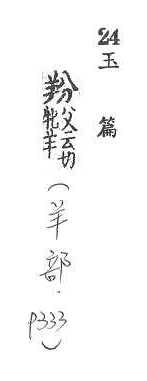 24玉篇
羒父云切牝羊(羊部.P333)